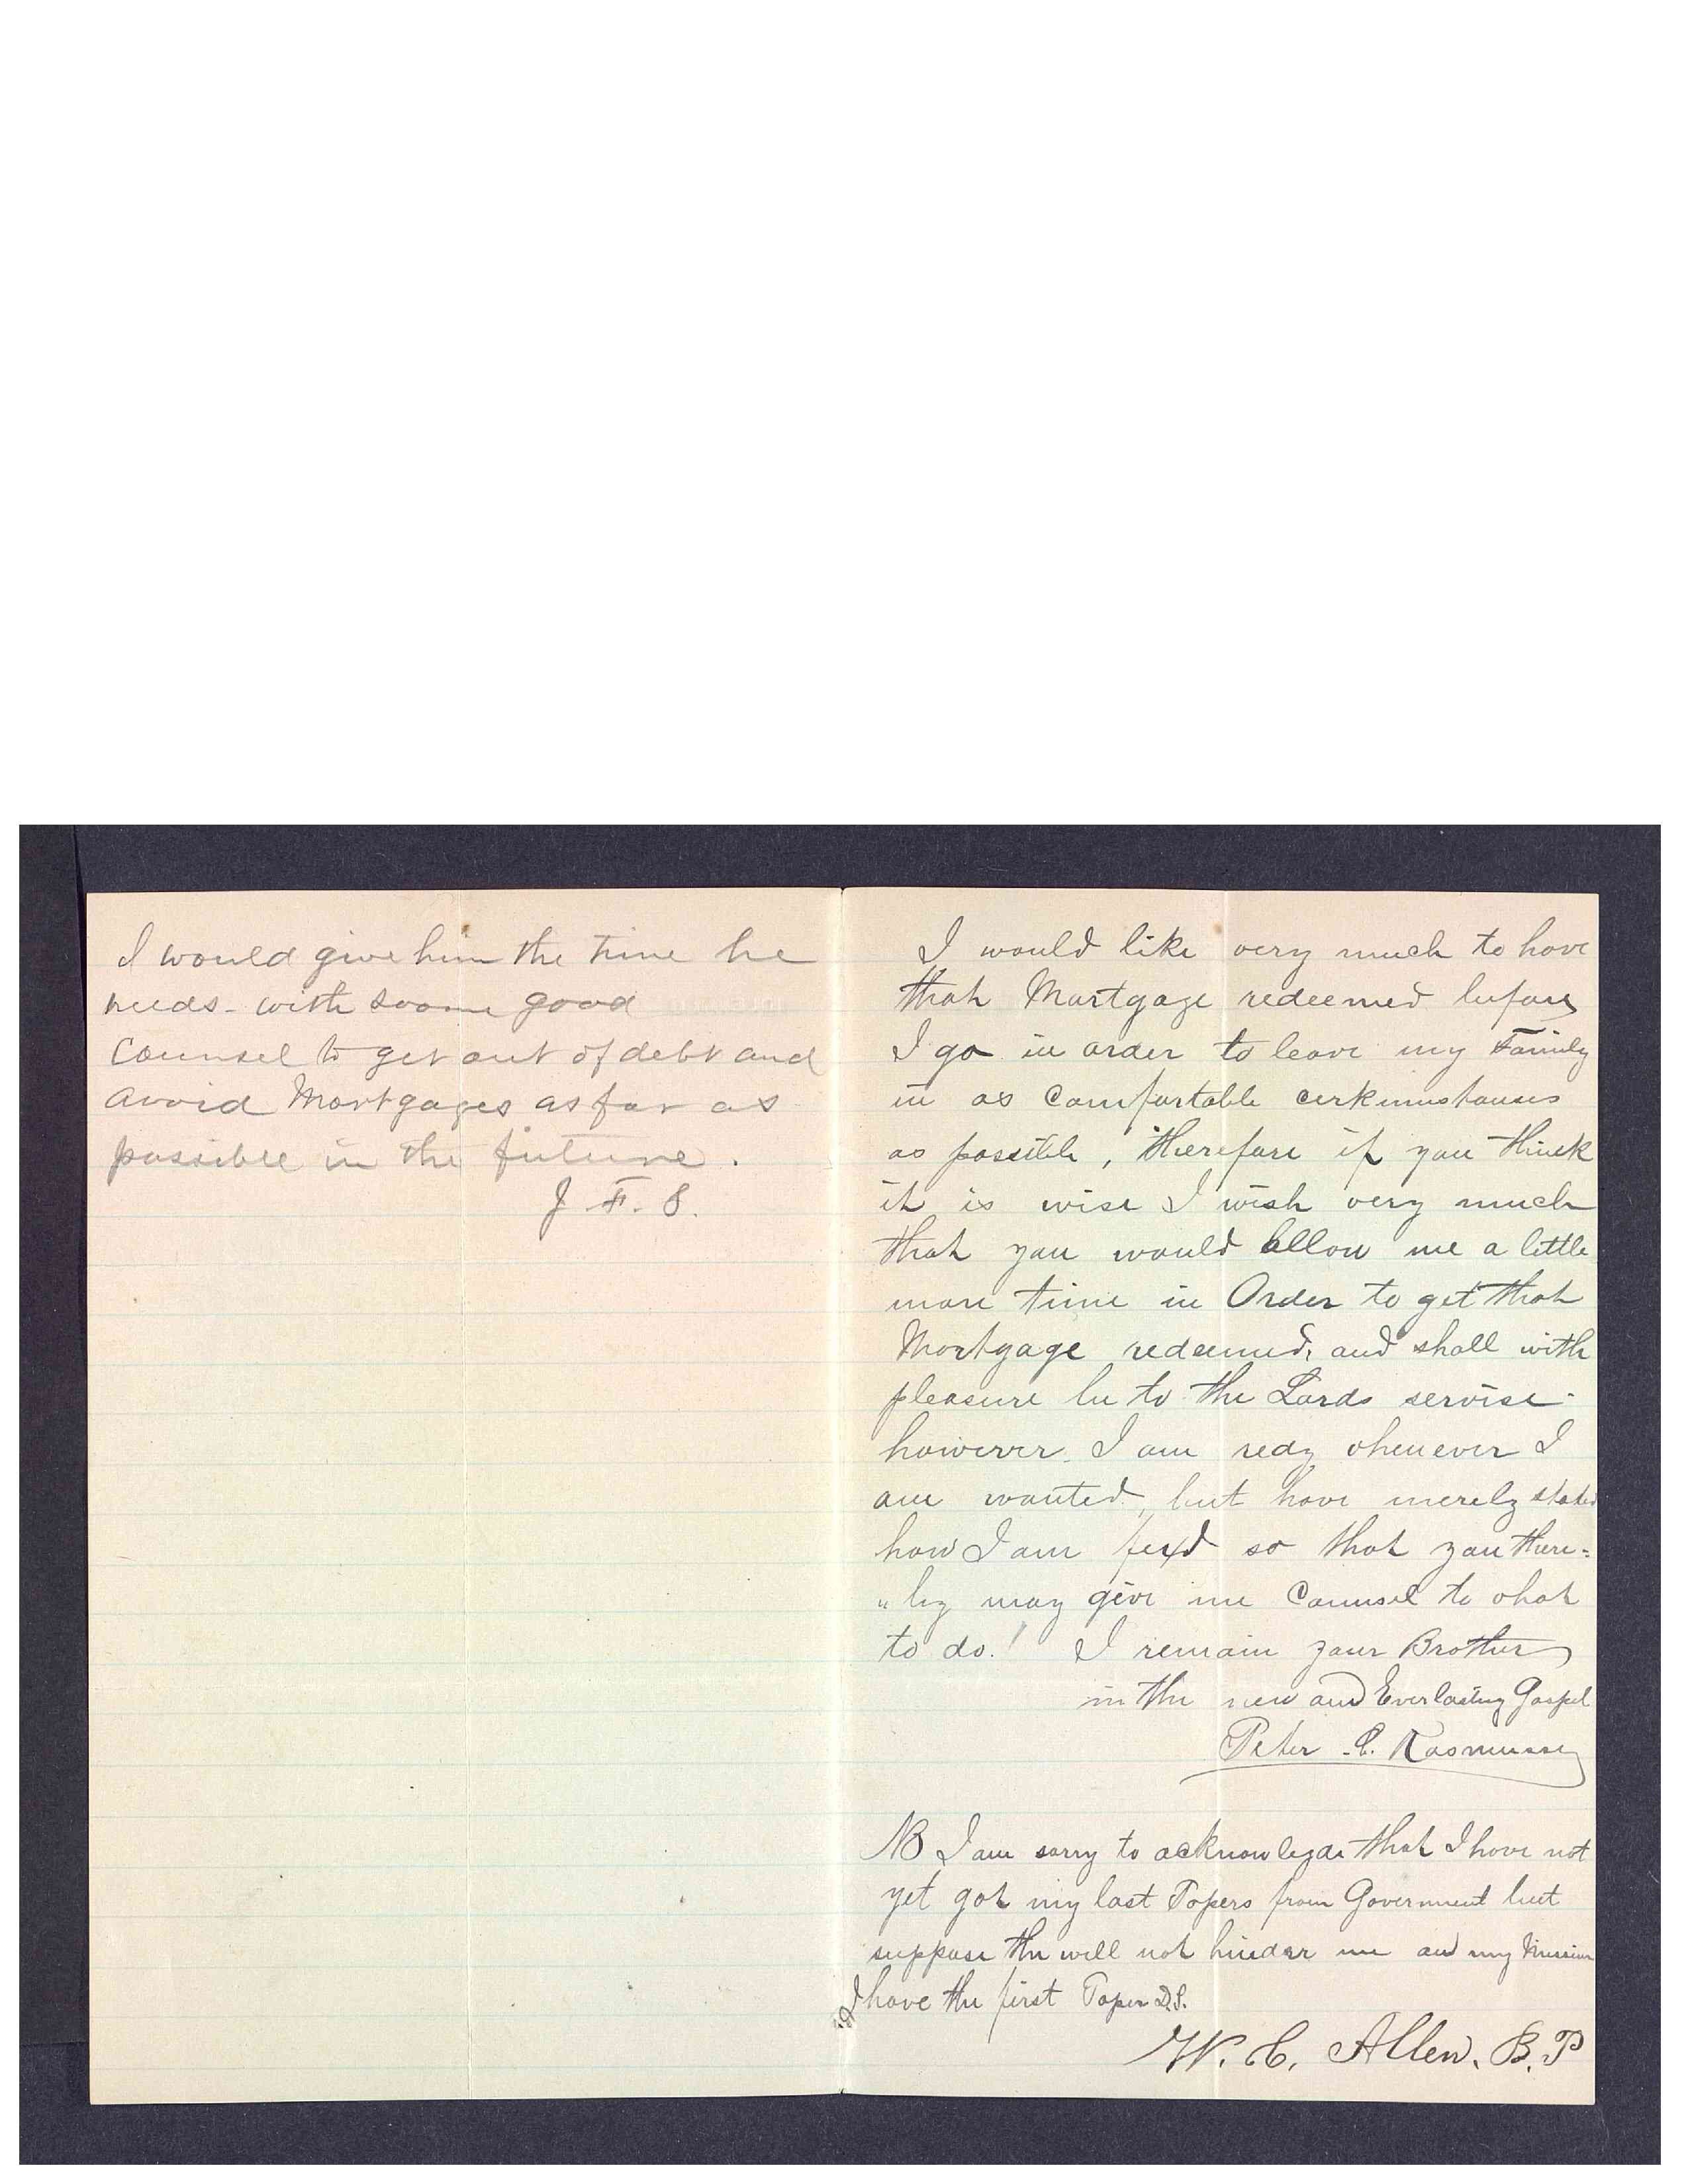 I would give him the time he
needs - with some good
counsel to get out of debt and
avoid Mortgages as far as
possible in the future.
J. F. S.
I would like very much to have
that Mortgage redeemed before
I go in order to leave my Family
in as Comfortable cerkumstanses
as possible, therefore if you think
it is wise I wish very much
that you would allow me a little
more time in Order to get that
Mortgage redeemed, and shall with
pleasure be to the Lords servise -
however I am redy ohenever I
am wanted, but have merely stated
how I am fexd so that you there=
"by may give me Counsel to ohat
to do! I remain your Brother
in the new and Everlasting Gospel
Peter C. Rasmussen
NB I am sorry to acknowlegde that I have not
yet got my last Papers from Government but
suppose the will not hinder me and my Mission
I have the first Paper D.S.
W. C. Allen. B.P